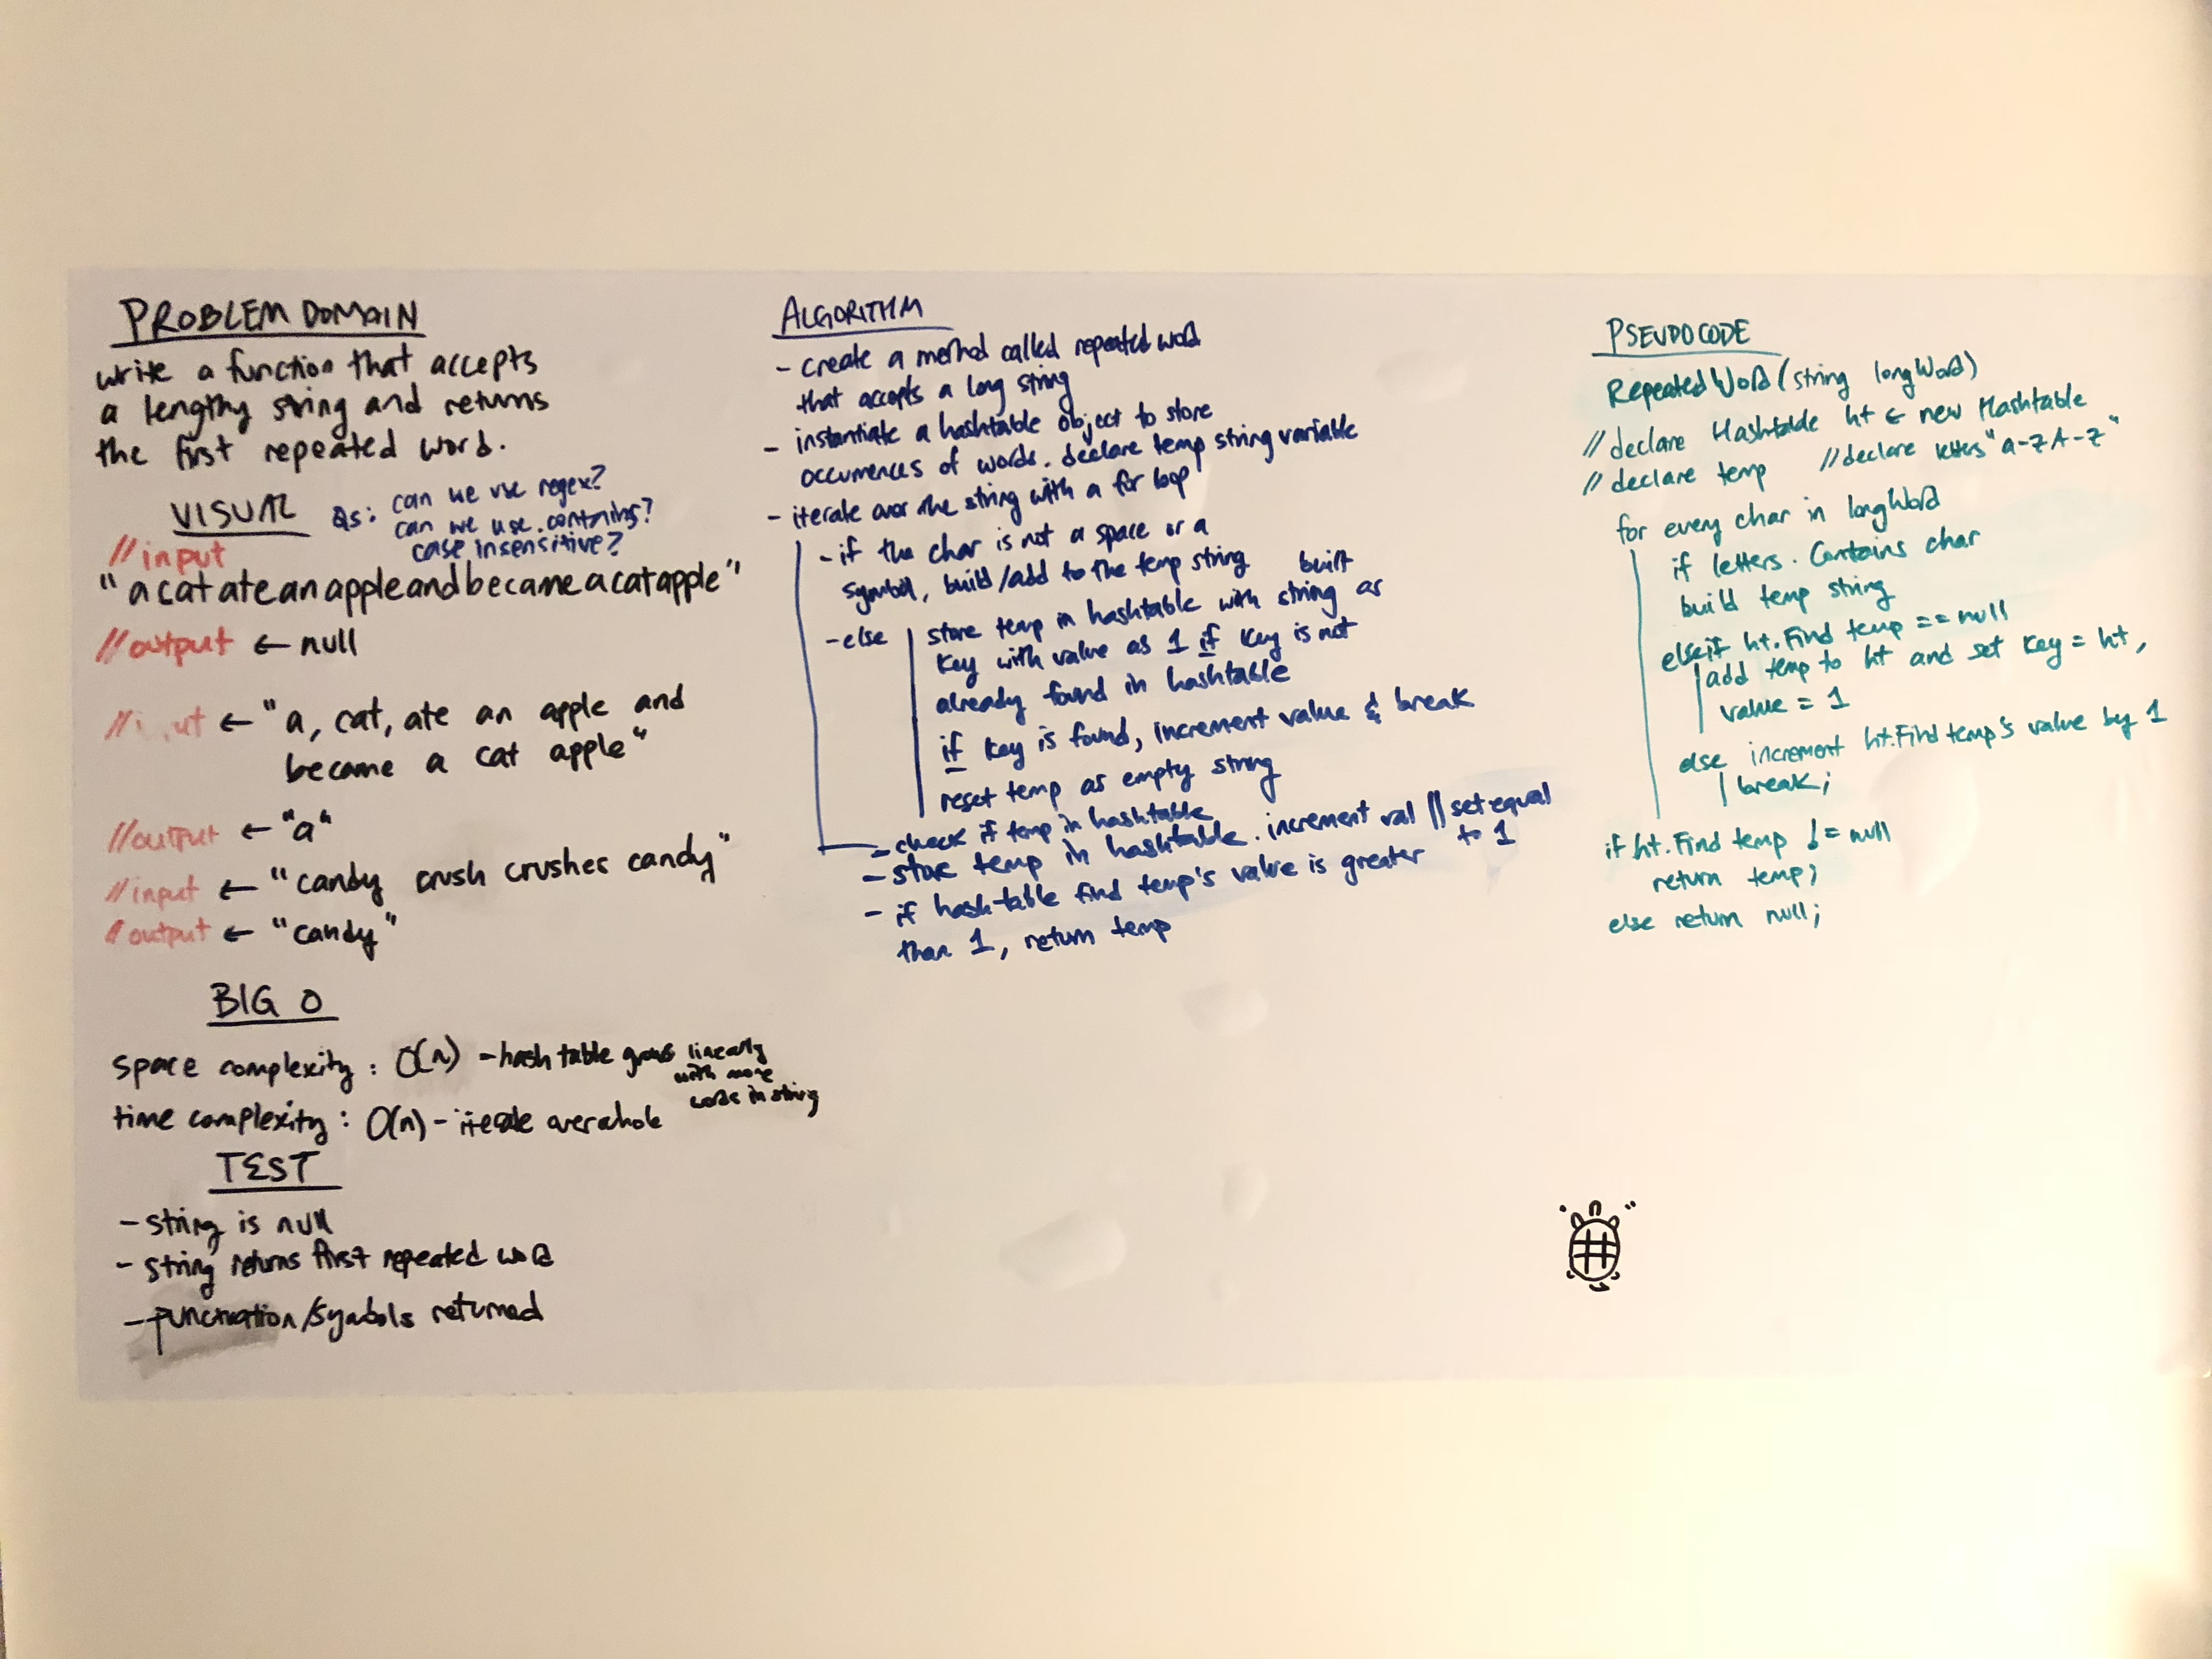 PROBLEM DOMAIN
write a function that accepts
a lengthy string and returns
the first repeated word.
VISUAL
Qs: can we use regex?
can we use .contains?
case insensitive?
//input
"acatateanappleandbecameacatapple"
//output ← null
//i ut ← "a, cat, ate an apple and
became a cat apple"
//output ← "a"
//input ← "candy crush crushes candy"
/output ← "candy"
BIG O
space complexity: O(n) - hash table grows linearly
with more
words in string
time complexity: O(n) - iterate over whole
TEST
- string is null
- string returns first repeated word
- punctuation/symbols returned
ALGORITHM
- create a method called repeated word
that accepts a long string
- instantiate a hashtable object to store
occurrences of words. declare temp string variable
- iterate over the string with a for loop
- if the char is not a space or a
symbol, build/add to the temp string
- else store temp in hashtable with built string as
key with value as 1 if key is not
already found in hashtable
if key is found, increment value & break
reset temp as empty string
- check if temp in hashtable
- store temp in hashtable. increment val || set equal
to 1
- if hashtable find temp's value is greater
than 1, return temp
PSEUDOCODE
RepeatedWord(string longWord)
//declare Hashtable ht ← new Hashtable
//declare temp //declare letters "a-zA-Z"
for every char in longWord
if letters.Contains char
build temp string
elseif ht.Find temp == null
add temp to ht and set key = ht,
value = 1
else increment ht.Find temp's value by 1
break;
if ht.Find temp != null
return temp;
else return null;